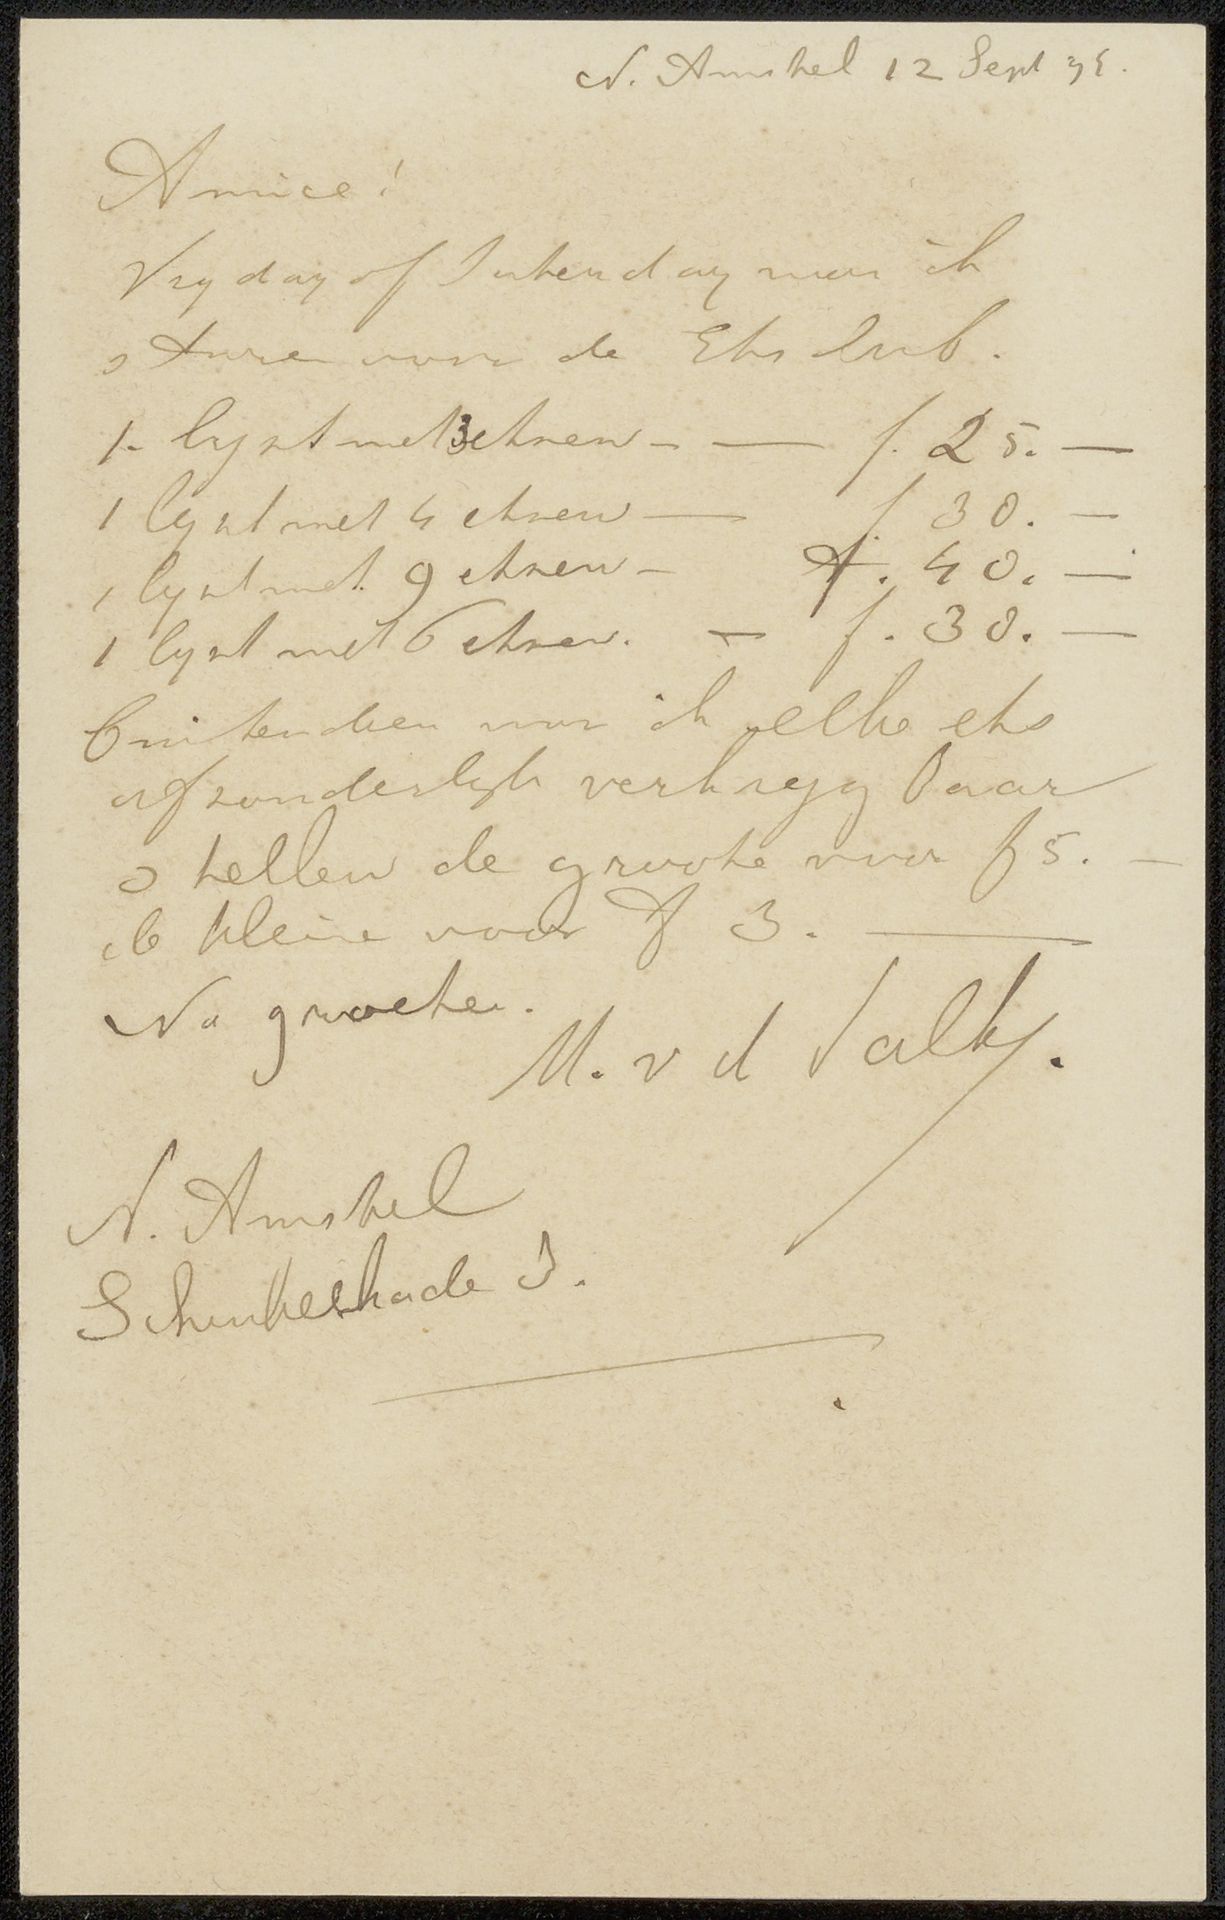 N. Amstel 12 Sept 95.
Amice!
Vrydag of Saterdag laat ik
sturen voor de Etsclub.
1. lyst met 3 etsen - — f. 25. —
1 lyst met 4 etsen — f 30. —
1 lyst met 9 etsen - f. 40. —
1 lyst met 6 etsen. - f. 30. —
buitendien wou ik elke ets
afzonderlyk verkrygbaar
stellen de groote voor f 5. —
de kleine voor f 3. —
Na groeten.
M. v d Valk.
N. Amstel
Schinkelkade 3.